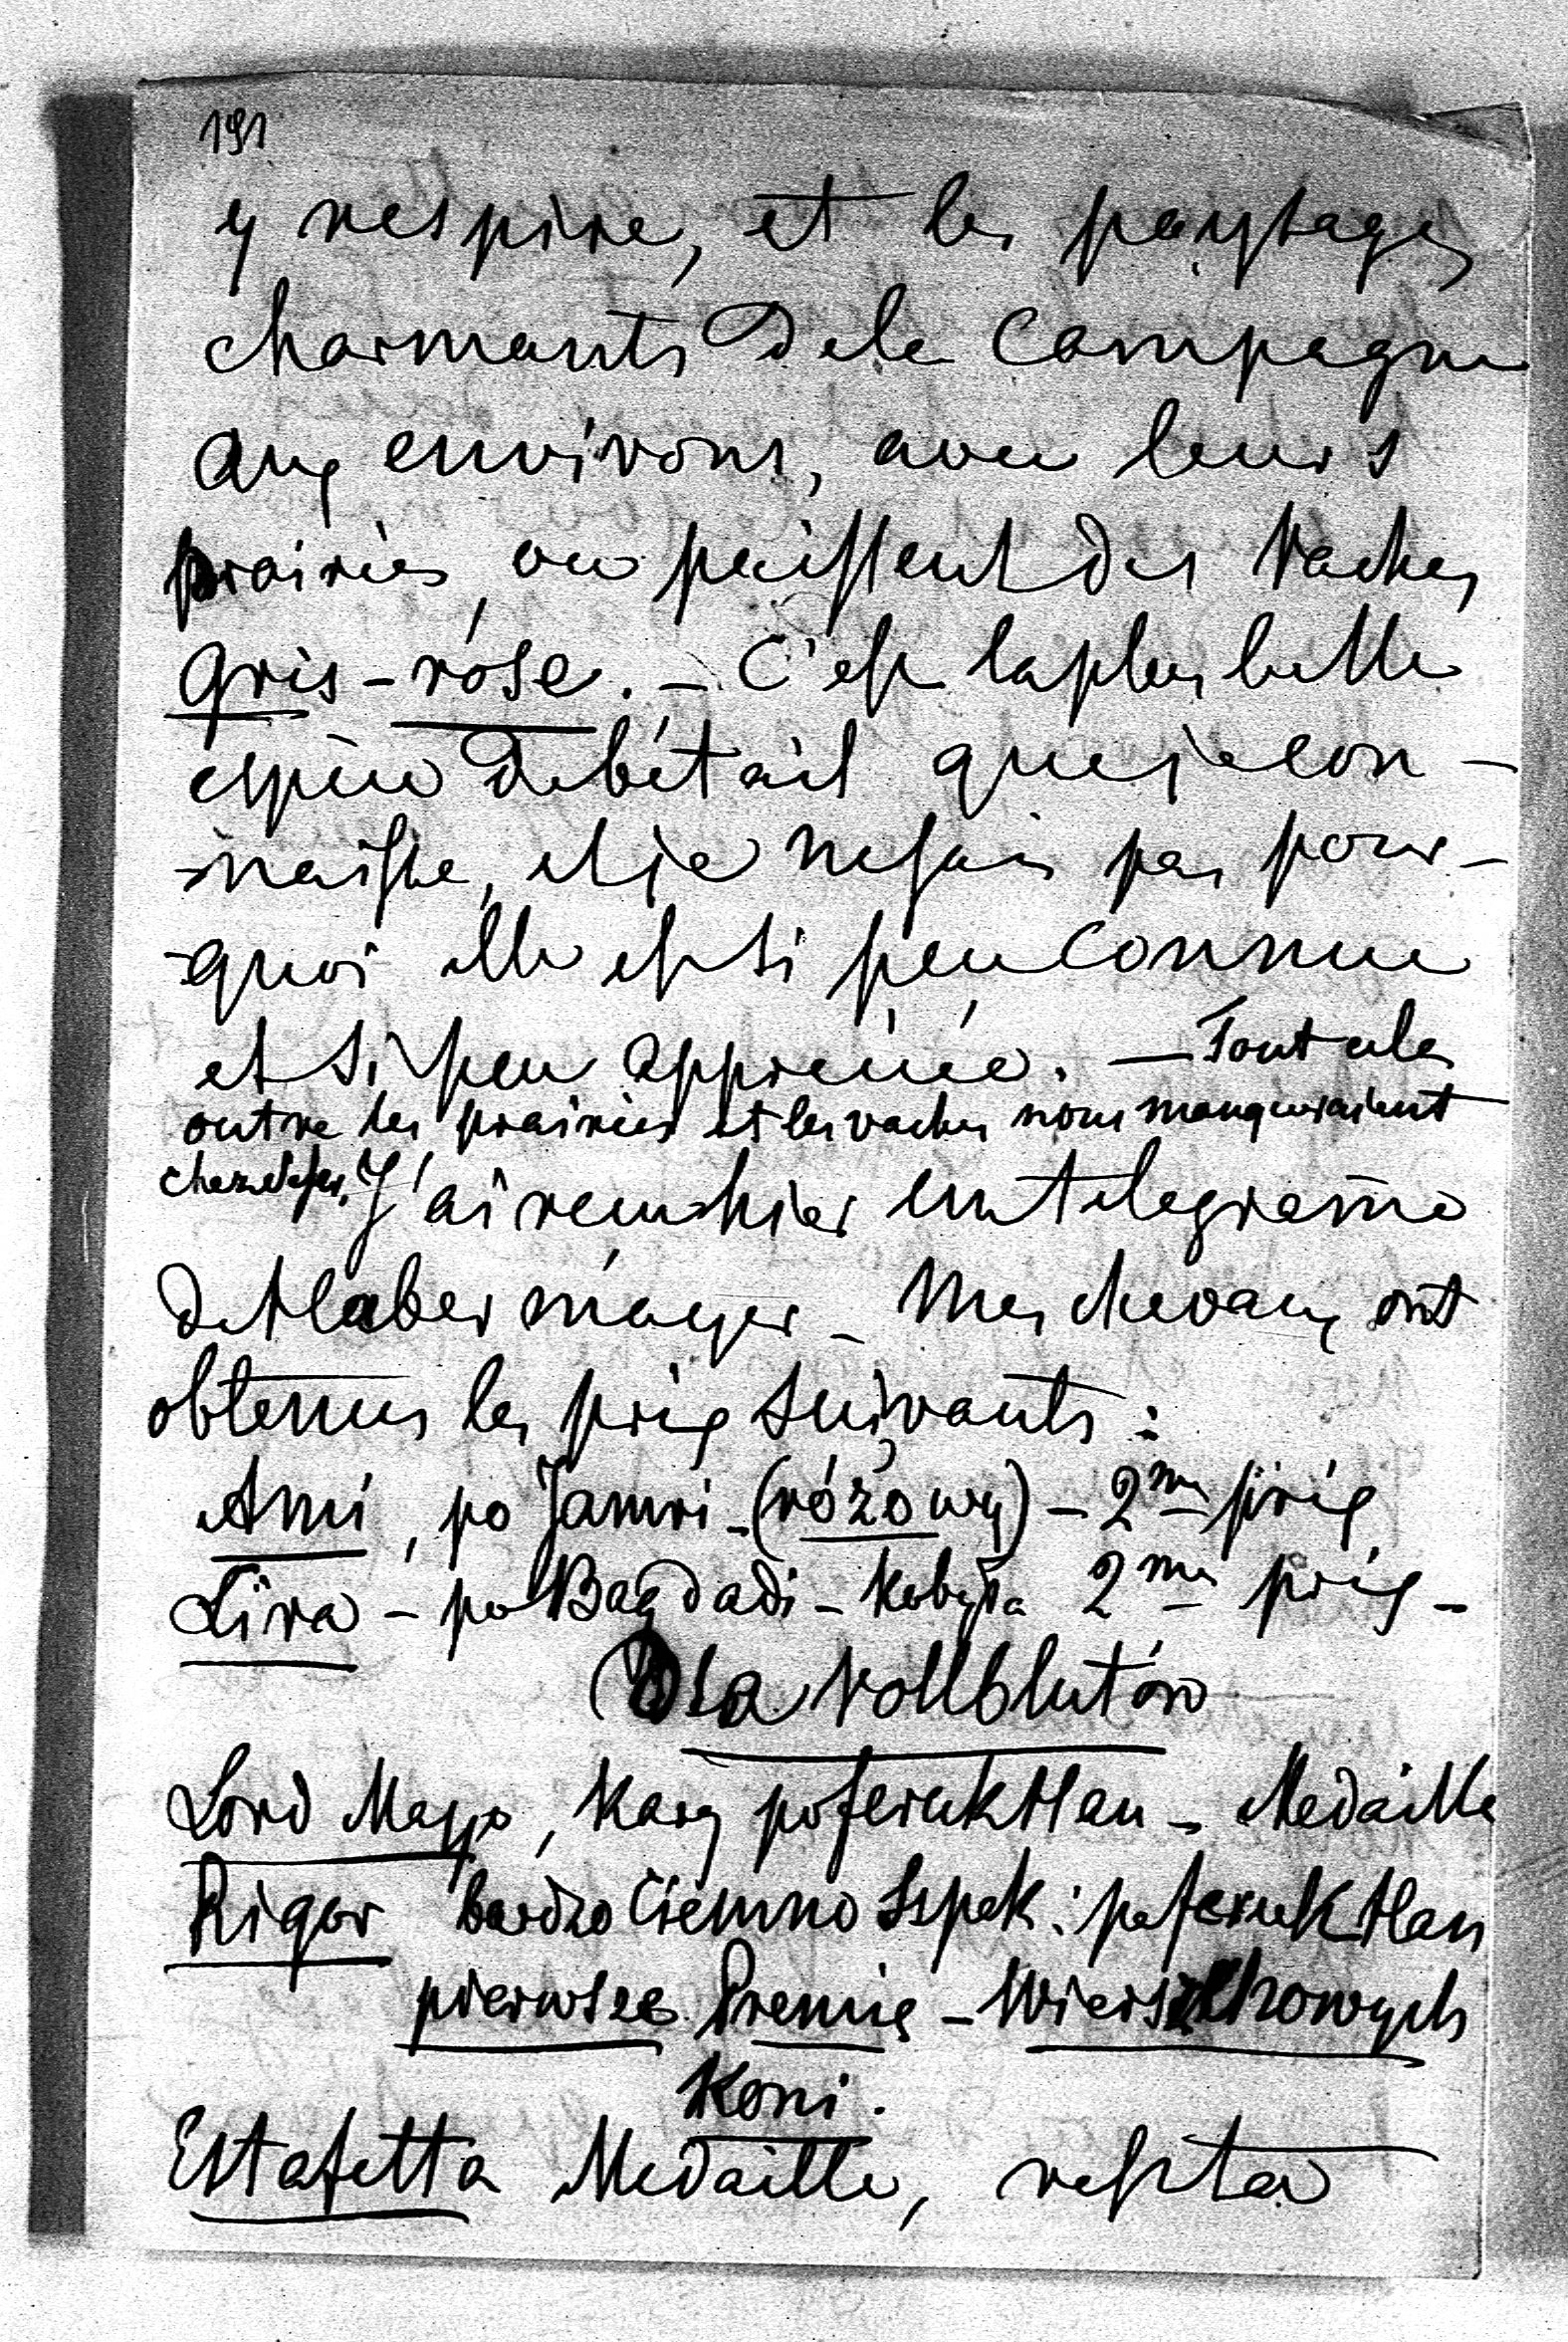 191
y respire, et les paysages
charmants de la Campagne
aux environs, avec leurs
prairies, ou paissent des Vaches
gris-rose. - C'est la plus belle
espèce de bétail que je con-
-naisse, et je ne sais pas pour-
-quoi elle est si peu connue
et si peu appréciée. — Tout cela
outre les prairies et les vaches nous manqueraient
J'ai reçu hier un telegrame
de Habermayer - Mes chevaux ont
obtenus les prix suivants :
Ami, po Jamri - (różowy) - 2me prix
Lira - po Bagdadi - Kobyła 2me prix -
(Dla Vollblutów
Lord Mayo, Kary po feruk Han - Medaille
Rigor bardzo ciemno Szpak : po feruk Han
pierwsze Premię - Wierzchowych
Koni.
Estafetta Medaille, reszta